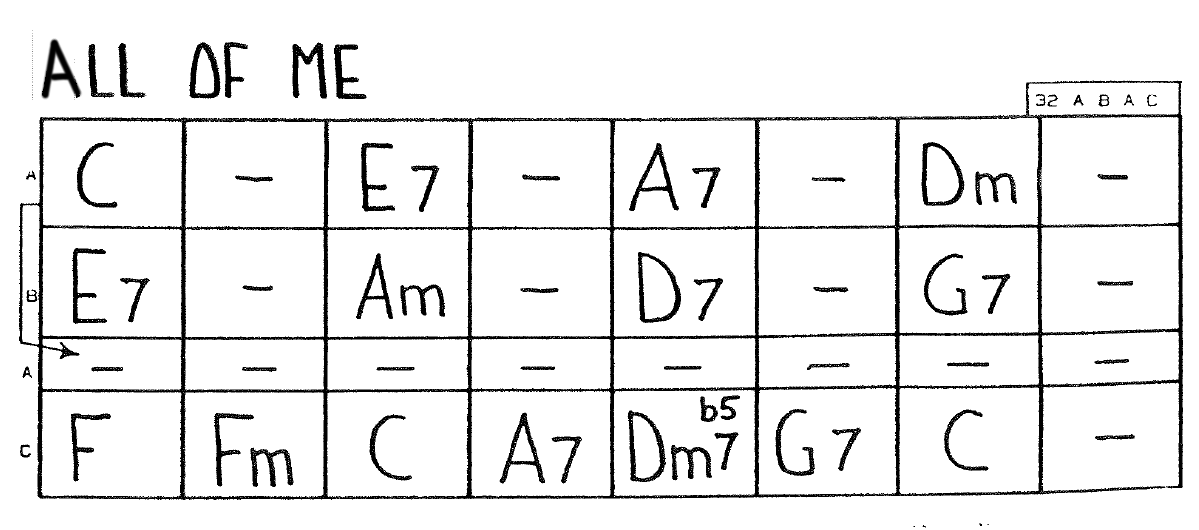 ALL OF ME
32 A B A C
A C – E7 – A7 – Dm –
B E7 – Am – D7 – G7 –
A – – – – – – – –
C F Fm C A7 Dm7b5 G7 C –